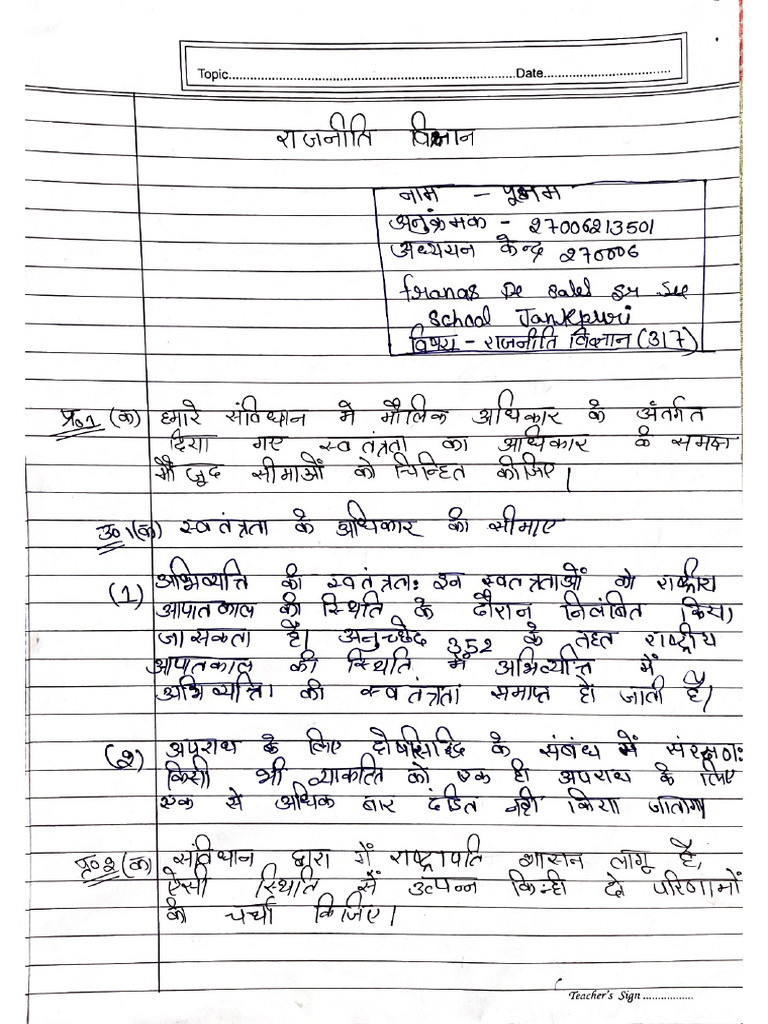 Topic Date
राजनीति विज्ञान
नाम - पूनम
अनुक्रमक - 27006213501
अध्ययन केन्द्र 270006
franas De sales Sr See
School Jankpuri
विषय - राजनीति विज्ञान (317)
प्र०1 (क) हमारे संविधान मे मौलिक अधिकार के अंतर्गत
दिया गए स्वतंत्रता का अधिकार के समक्ष
मौजूद सीमाओं को चिन्हित कीजिए।
उ०1(क) स्वतंत्रता के अधिकार की सीमाए
(1) अभिव्यत्ति की स्वतंत्रता: इन स्वतत्रताओं को राष्ट्रीय
आपातकाल की स्थिति के दौरान निलंबित किया
जा सकता है। अनुच्छेद 352 के तहत राष्ट्रीय
आपतकाल की स्थिति में अभिव्यत्ति में
अभिव्यत्ति की स्वतंत्रता समाप्त हो जाती है।
(2) अपराध के लिए दोषसिद्धि के संबंध में संरक्षण:
किसी भी व्यक्ति को एक ही अपराध के लिए
एक से अधिक बार दंडित नही किया जाएगा
प्र०2 (क) संविधान द्वारा में राष्ट्रापति शासन लागू है,
ऐसी स्थिति से उत्पन्न किन्ही दो परिणामों
की चर्चा किजिए।
Teacher's Sign